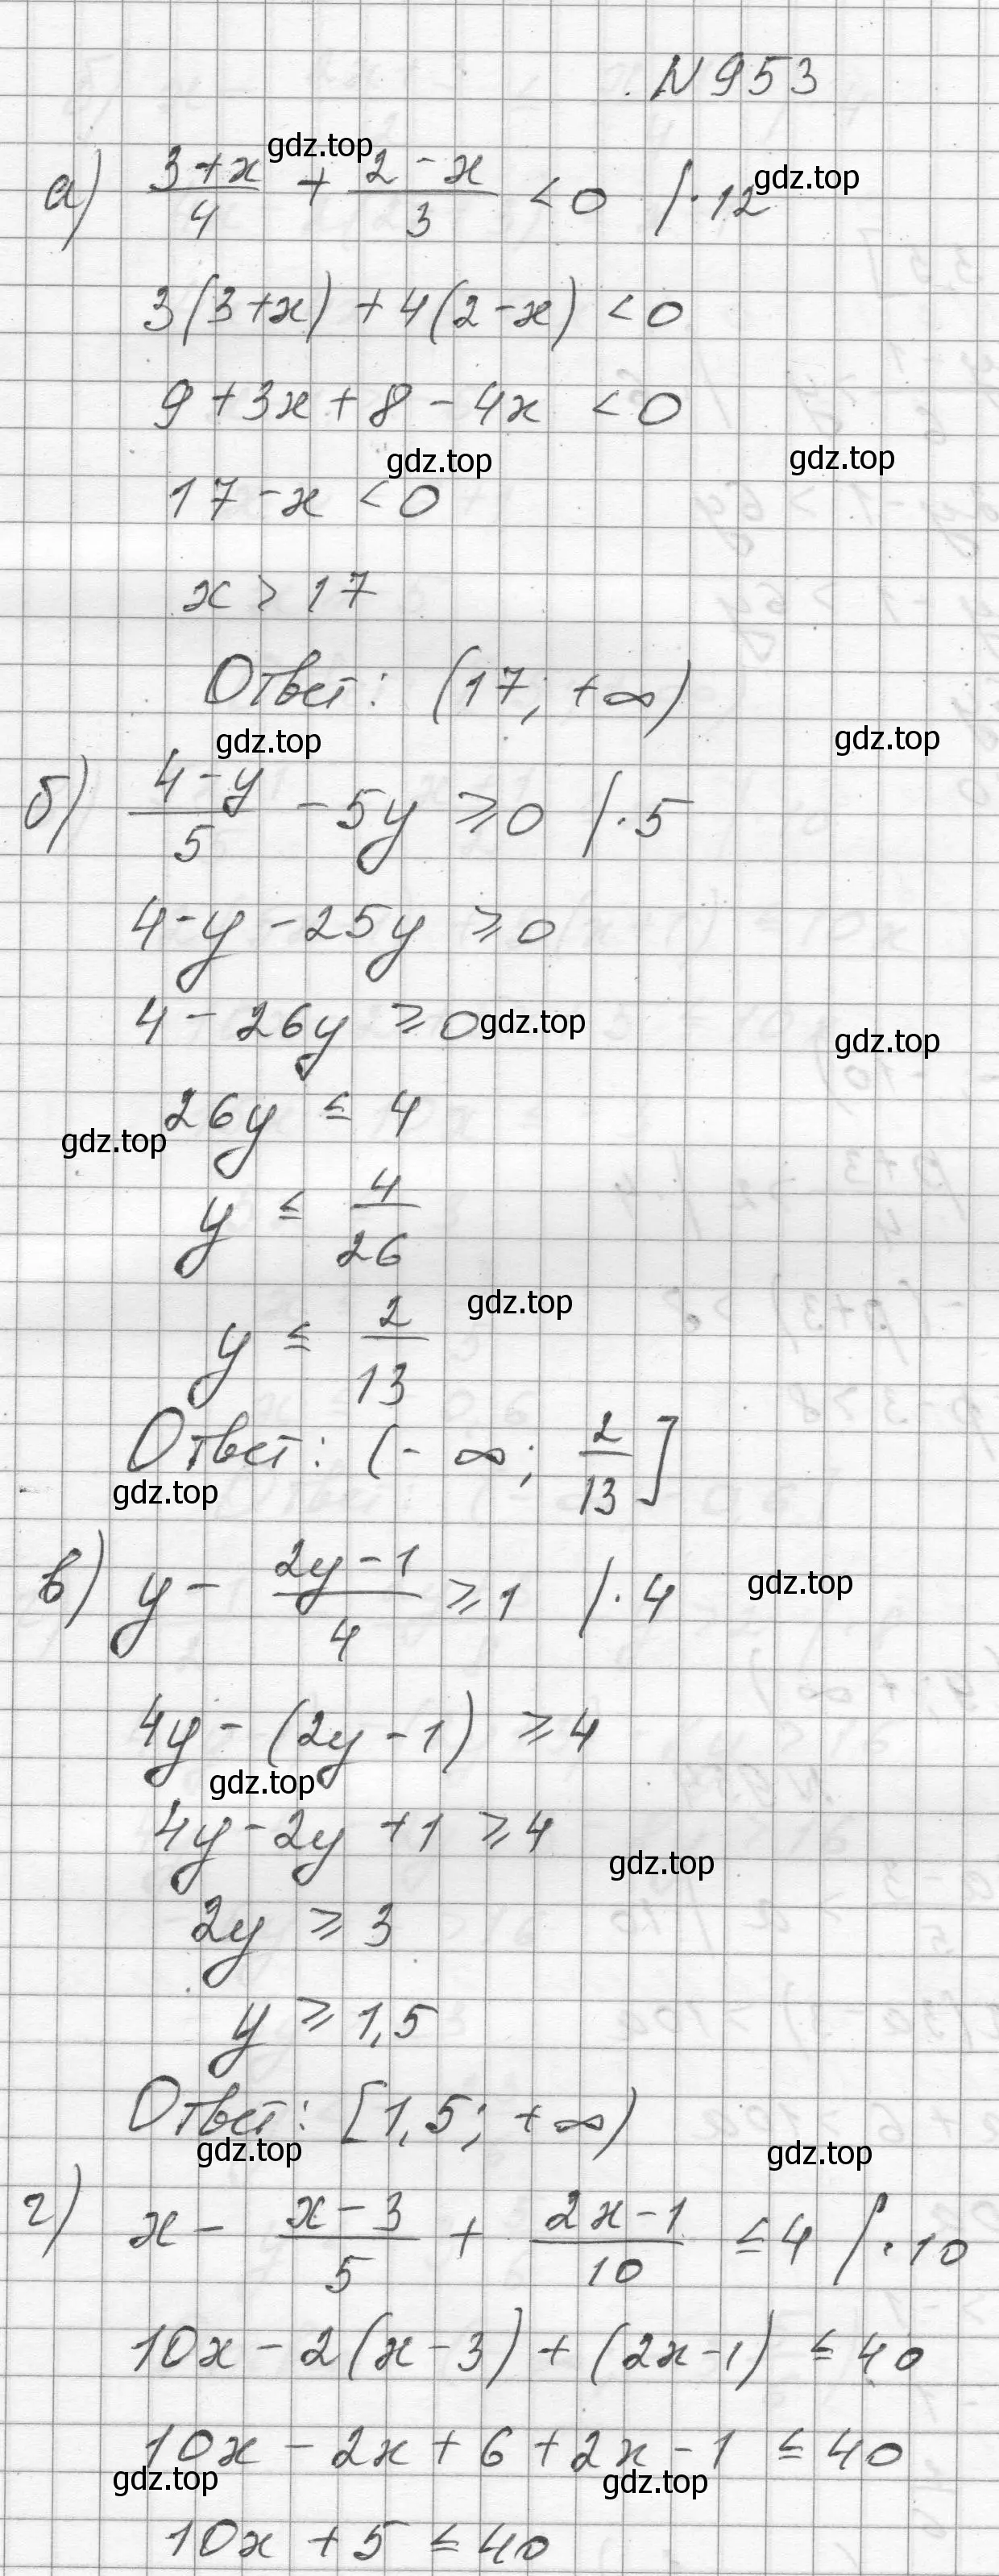 N 953
gdz.top
а) (3+x)/4 + (2-x)/3 < 0 /·12
gdz.top
3(3+x) + 4(2-x) < 0
9 + 3x + 8 - 4x < 0
gdz.top
gdz.top
17 - x < 0
x > 17
Ответ: (17; +∞)
gdz.top
gdz.top
б) (4-y)/5 - 5y ⩾ 0 /·5
4 - y - 25y ⩾ 0
4 - 26y ⩾ 0
gdz.top
gdz.top
26y ≤ 4
gdz.top
y ≤ 4/26
gdz.top
y ≤ 2/13
Ответ: (-∞; 2/13]
gdz.top
в) y - (2y-1)/4 ⩾ 1 /·4
gdz.top
4y - (2y-1) ⩾ 4
gdz.top
4y - 2y + 1 ⩾ 4
gdz.top
2y ⩾ 3
y ⩾ 1,5
Ответ: [1,5; +∞)
gdz.top
gdz.top
г) x - (x-3)/5 + (2x-1)/10 ≤ 4 /·10
10x - 2(x-3) + (2x-1) ≤ 40
10x - 2x + 6 + 2x - 1 ≤ 40
gdz.top
gdz.top
10x + 5 ≤ 40